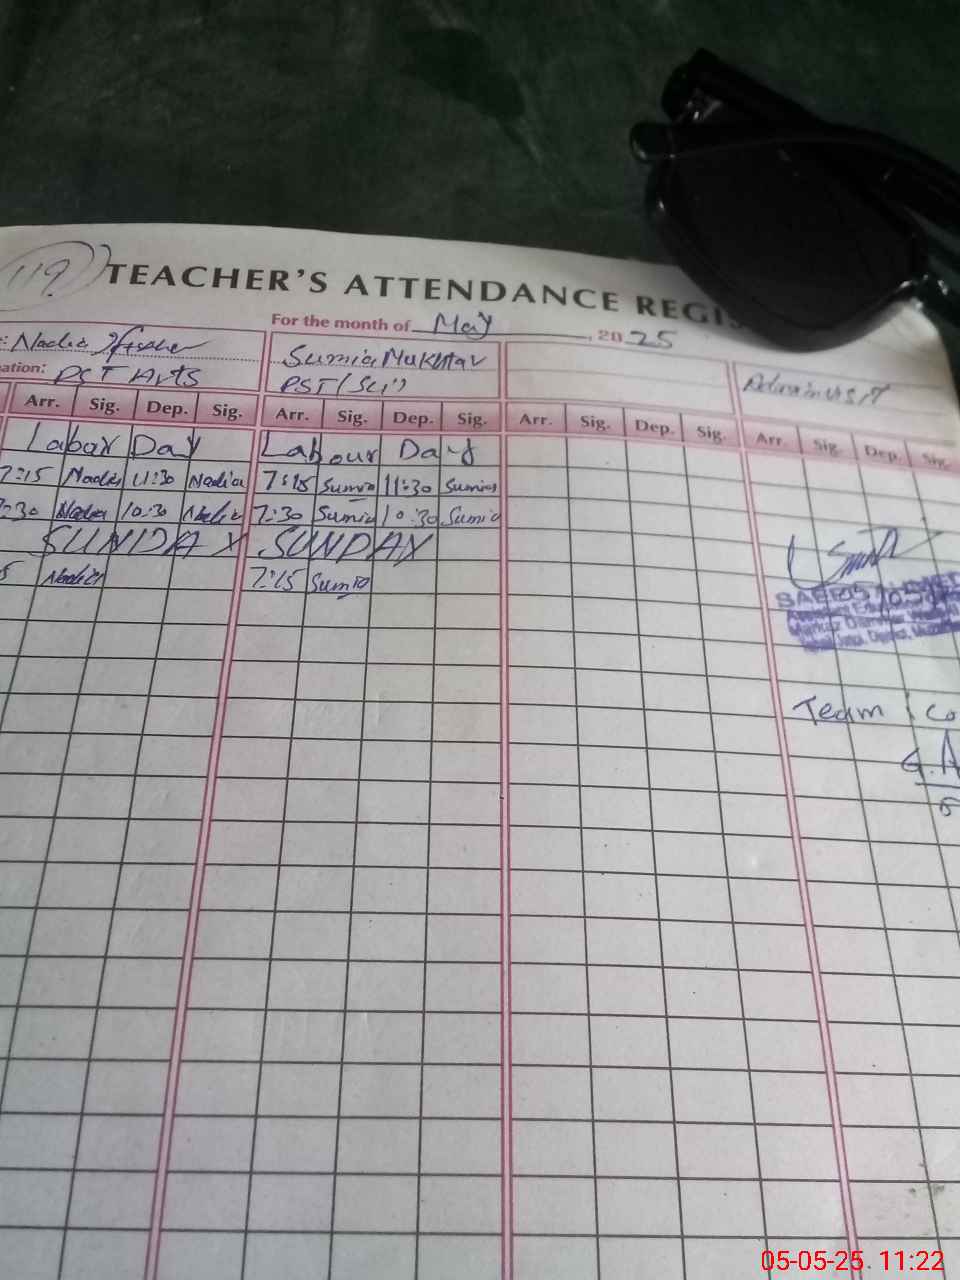 119
TEACHER'S ATTENDANCE REGIS
For the month of May, 2025
: Nadia
ation: PST Arts
Sumia Mukhtar
PST (Sci)
Arr. Sig. Dep. Sig. Arr. Sig. Dep. Sig. Arr. Sig. Dep. Sig. Arr. Sig. Dep. Sig.
Labor Day Labour Day
7:15 Nadia 11:30 Nadia 7:15 Sumia 11:30 Sumia
:30 Nadia 10:30 Nadia 7:30 Sumia 10:30 Sumia
SUNDAY SUNDAY
5 Nadia 7:15 Sumia
Team Co
G.A
05-05-25 11:22